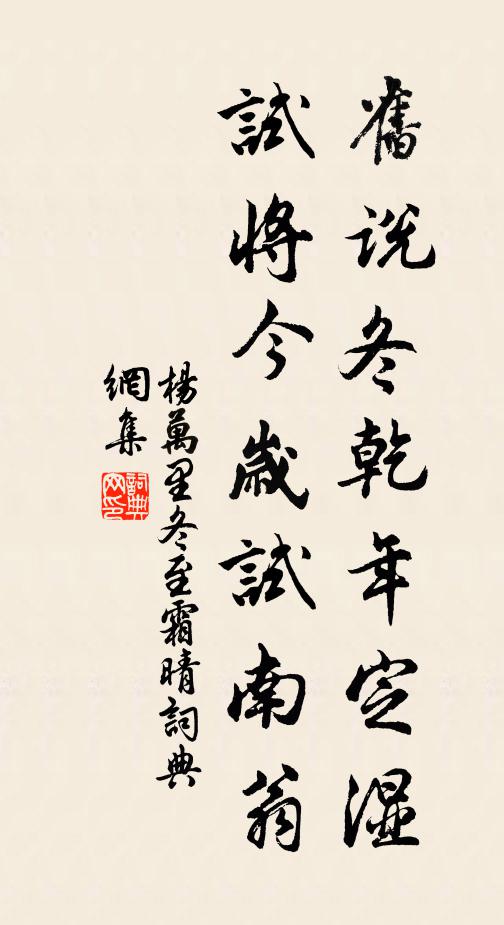 舊說冬乾年定濕
試將今歲試南翁
楊萬里冬至霜晴詞典
網集
詞典
网印